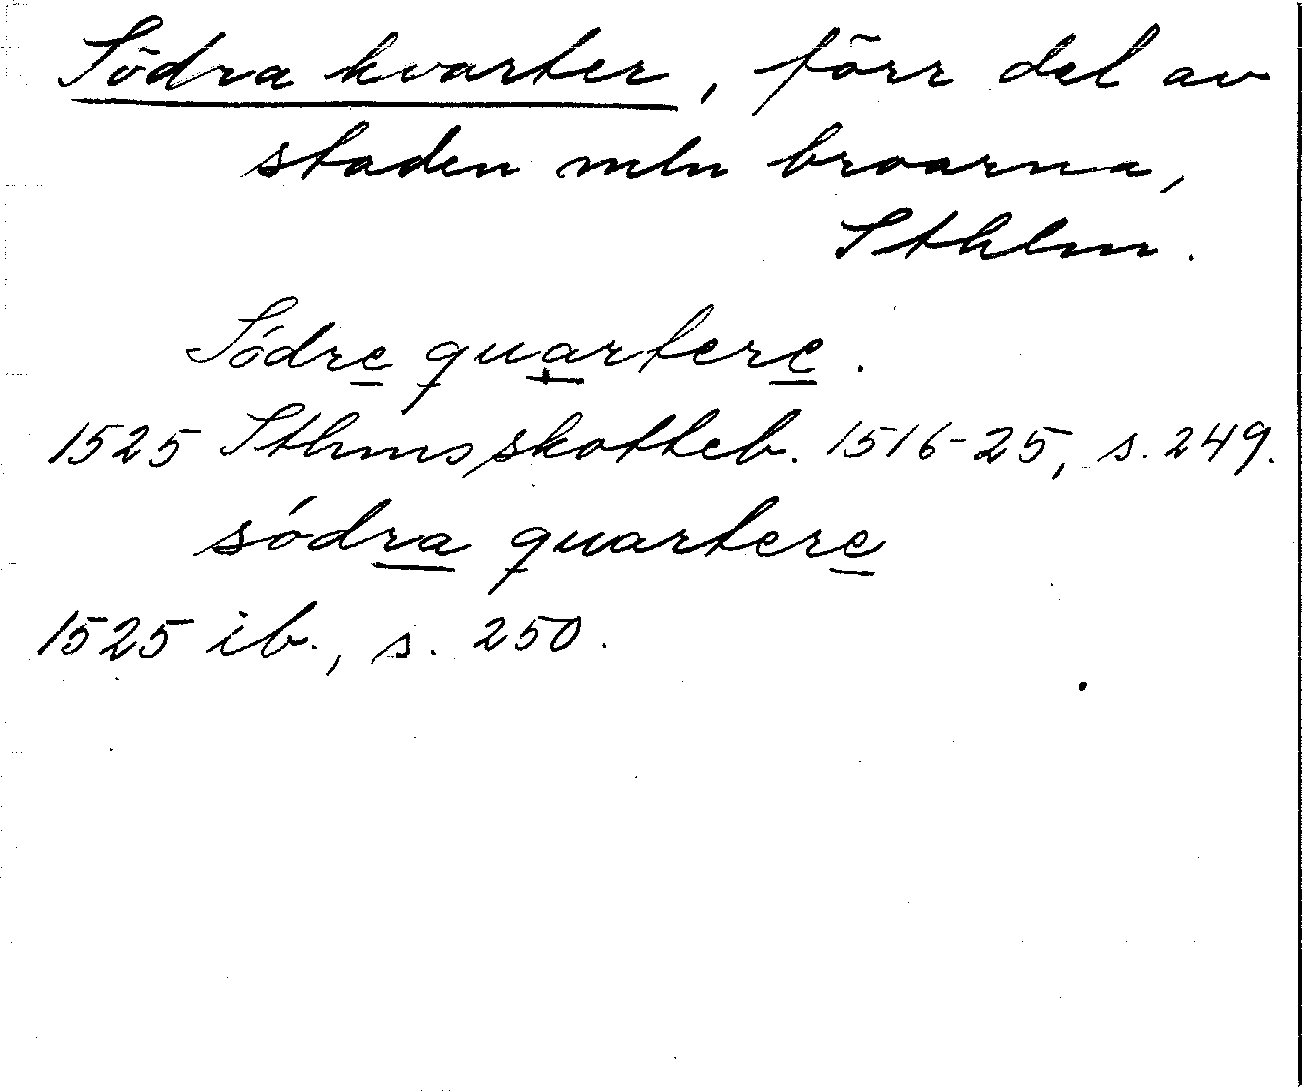 Södra kvarter, förr del av
staden mln broarna,
Sthlm.
Södre quartere.
1525 Sthms skotteb. 1516-25, s. 249.
södra quartere
1525 ib., s. 250.